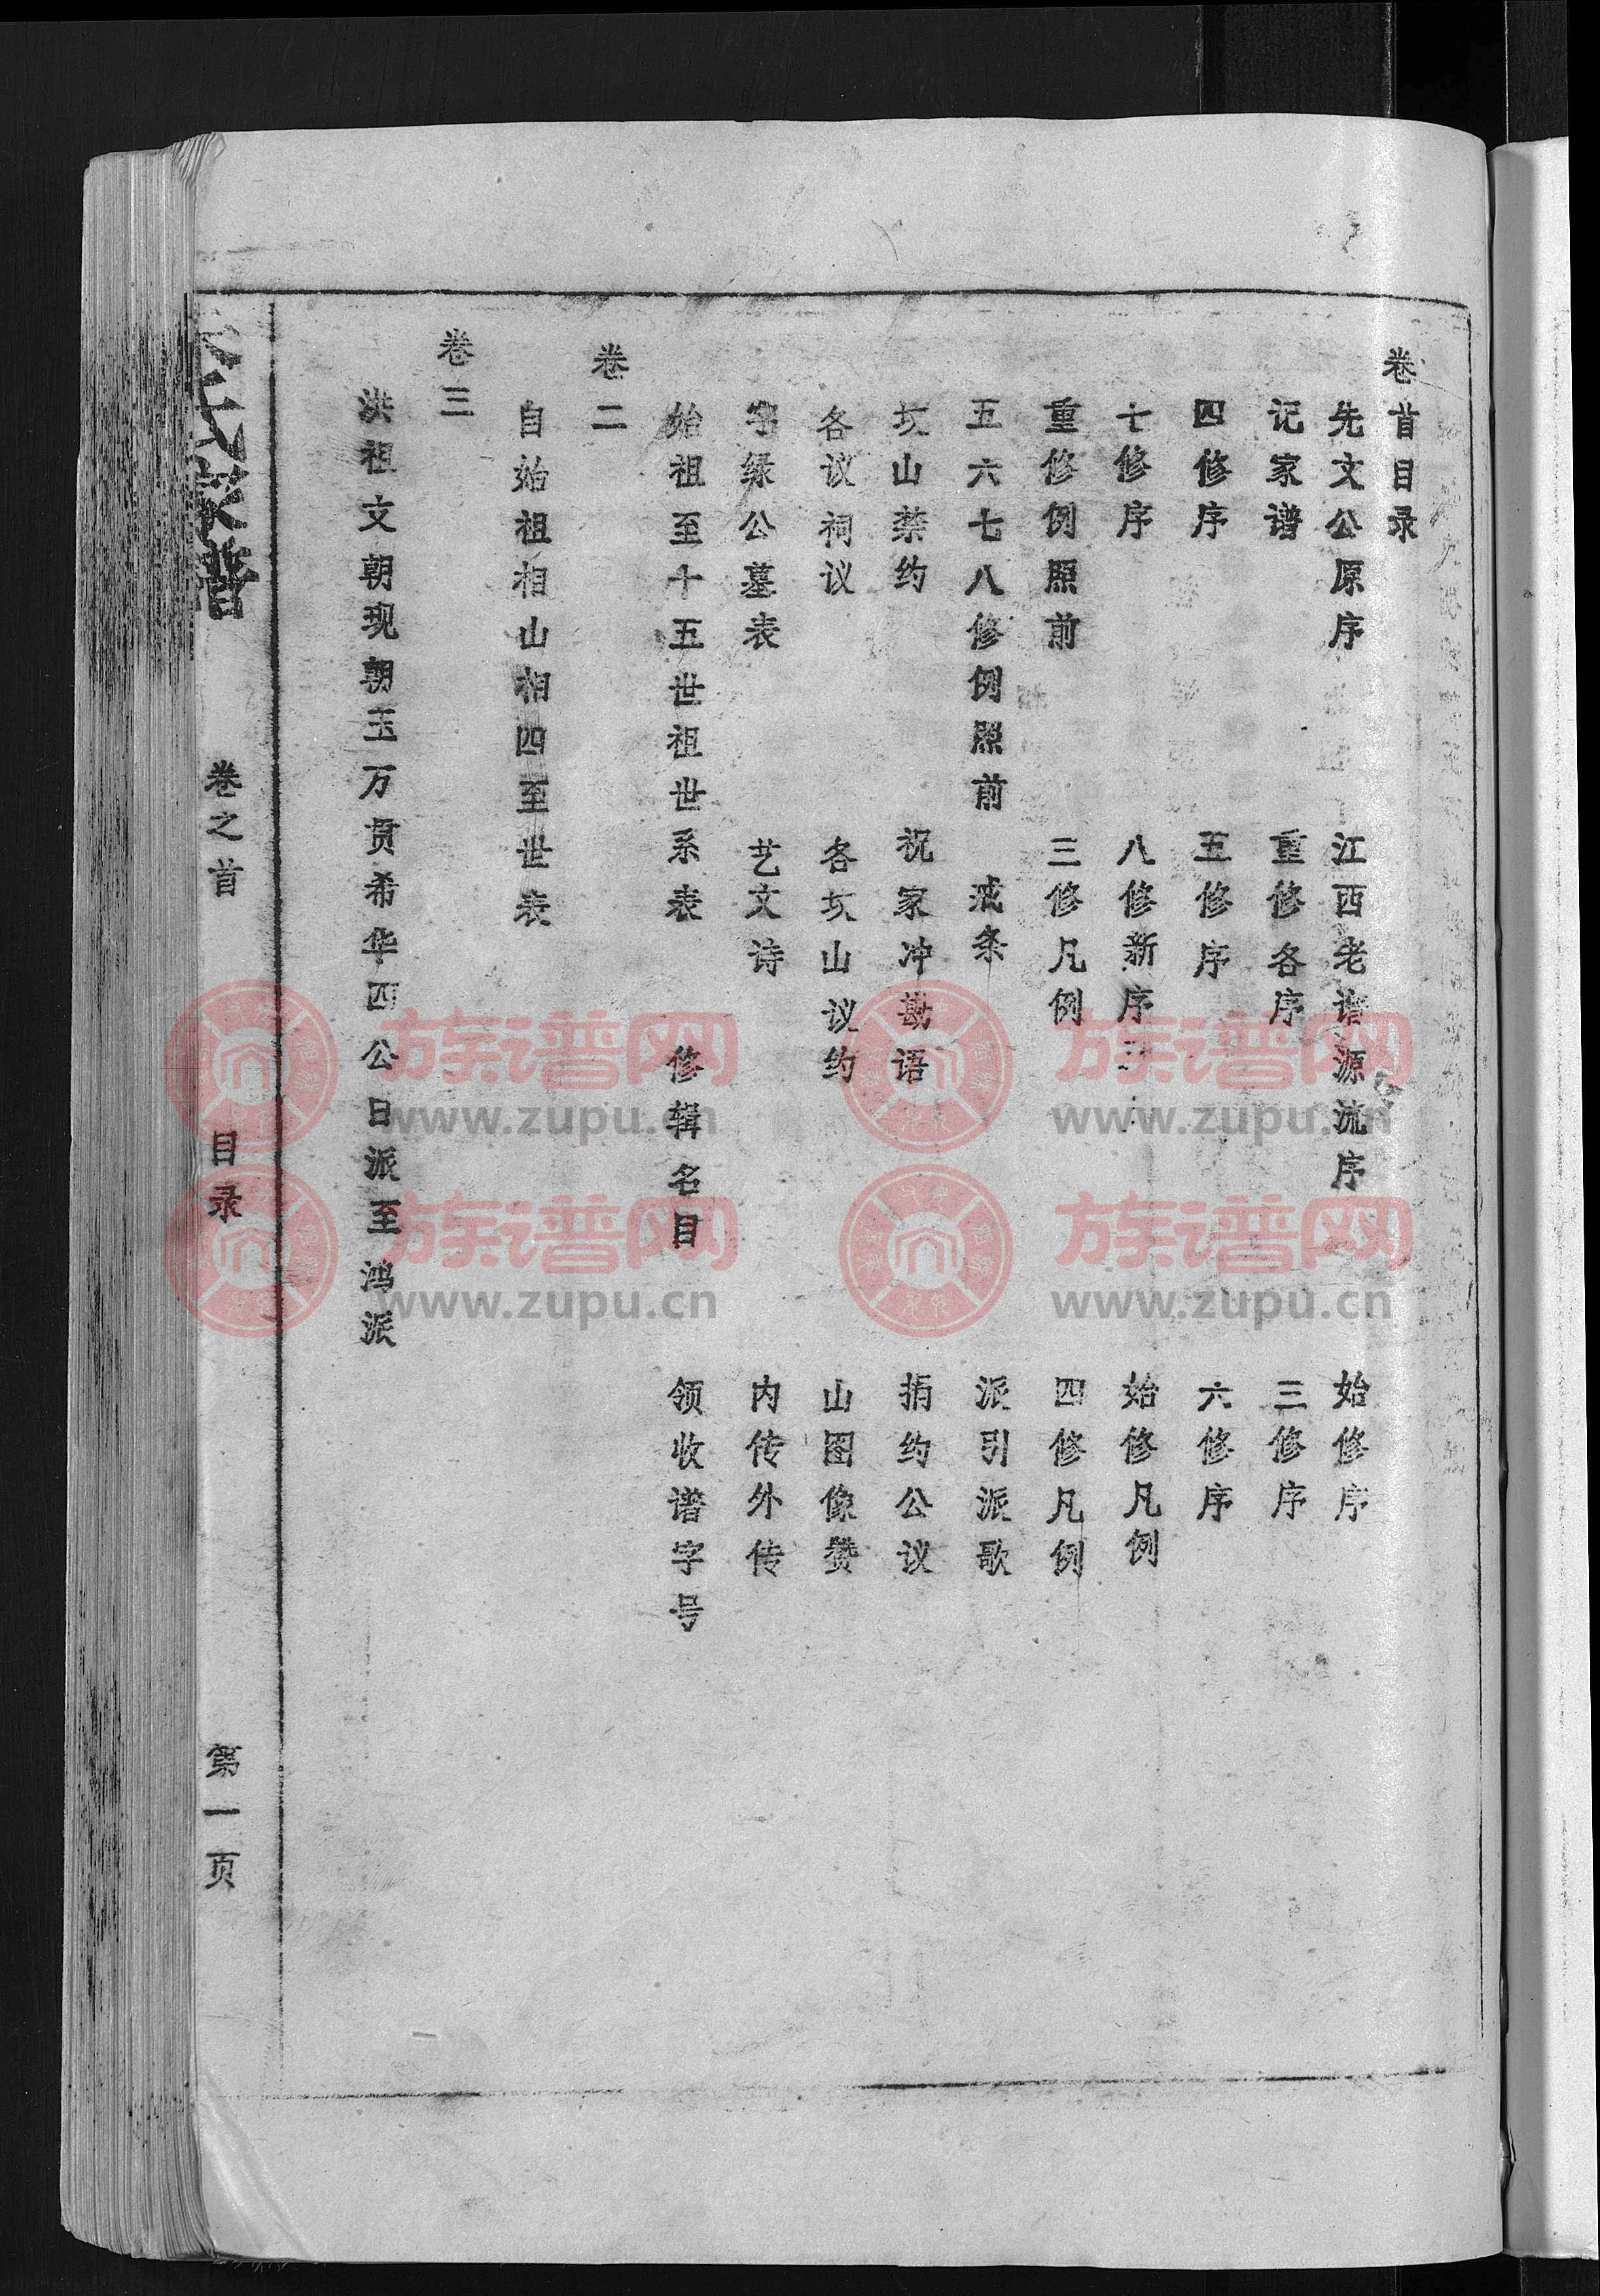 卷首目录
先文公原序 江西老谱源流序 始修序
记家谱 重修各序 三修序
四修序 五修序 六修序
七修序 八修新序 始修凡例
重修例照前 三修凡例 四修凡例
五六七八修例照前 戒条 派引派歌
坟山禁约 祝家冲勘语 捐约公议
各议祠议 各坟山议约 山图像赞
缘公墓表 艺文诗 内传外传
始祖至十五世祖世系表 修辑名目 领收谱字号
卷二
自始祖相山相四至世表
卷三
洪祖文朝现朝玉万贯希华四公日派至鸿派
氏家谱
卷之首
目录
第一页
族谱网
www.zupu.cn
族谱网
www.zupu.cn
族谱网
www.zupu.cn
族谱网
www.zupu.cn